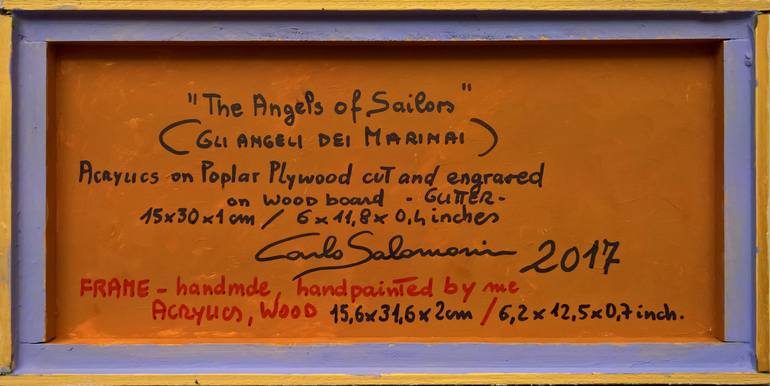 "The Angels of Sailors"
(GLI ANGELI DEI MARINAI)
ACRYLICS on Poplar Plywood cut and engraved
on WOOD board - GLITTER -
15x30x1 cm / 6x11,8x0,4 inches
Carlo Salomoni 2017
FRAME - handmde, handpainted by me
ACRYLICS, WOOD 15,6x31,6x2cm / 6,2x12,5x0,7 inch.